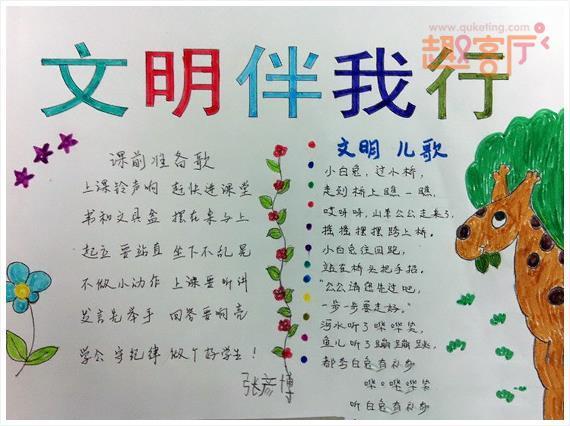 www.quketing.com
趣客厅
文明伴我行
课前准备歌
上课铃声响 赶快进课堂
书和文具盒 摆在桌与上
起立要站直 坐下不乱晃
不做小动作 上课要听讲
发言先举手 回答要响亮
学会守纪律 做个好学生！
张彦博
文明儿歌
小白兔，过小桥，
走到桥上瞧一瞧，
哎呀呀，山羊公公走来了，
摇摇摆摆跨上桥。
小白兔往回跑，
站在桥头把手招。
“公公请您先过吧，
一步一步要走好。”
河水听了哗哗笑，
鱼儿听了蹦蹦跳，
都夸白兔有礼貌
哗哗哗哗笑
听白兔有礼貌